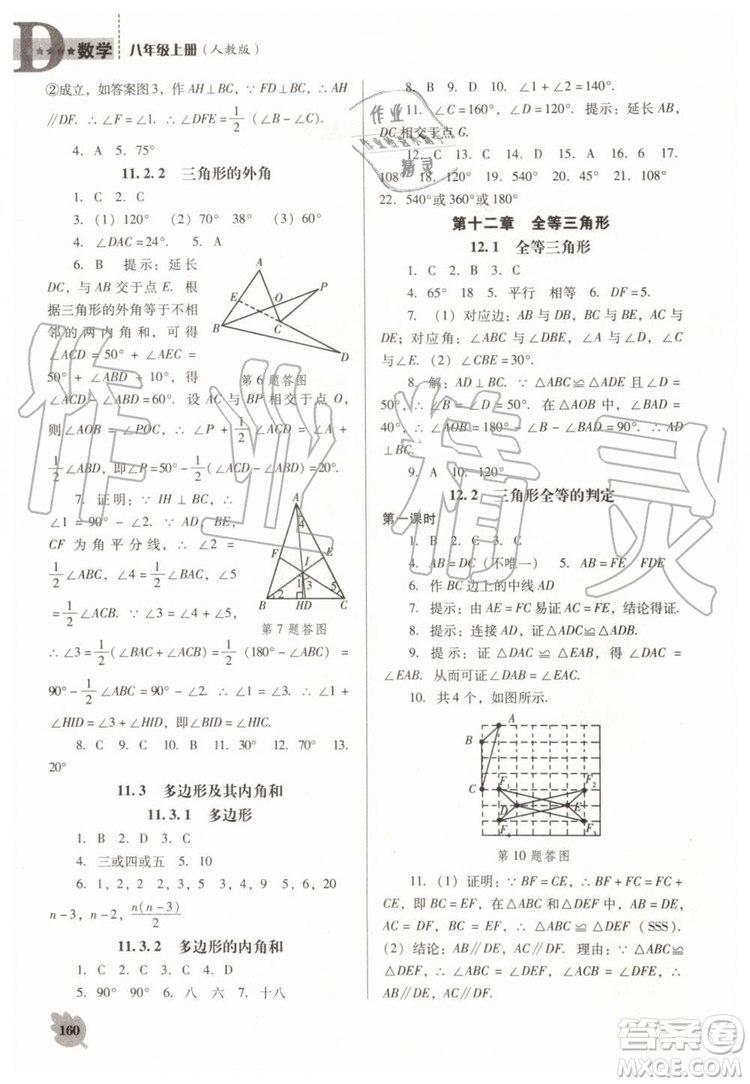 D ★★★★ 数学 八年级上册（人教版）
②成立，如答案图 3，作 AH⊥BC，∵ FD⊥BC，∴ AH
∥DF. ∴ ∠F = ∠1. ∴ ∠DFE = 1/2 (∠B - ∠C).
4. A 5. 75°
11.2.2 三角形的外角
1. C 2. C
3. (1) 120° (2) 70° (3) 38° (4) 60°
4. ∠DAC = 24°. 5. A
6. B 提示：延长
DC，与 AB 交于点 E. 根
据三角形的外角等于不相
邻的两内角和，可得
∠ACD = 50° + ∠AEC =
50° + ∠ABD + 10°，得
∠ACD - ∠ABD = 60°. 设 AC 与 BP 相交于点 O，
则∠AOB = ∠POC，∴ ∠P + 1/2 ∠ACD = ∠A +
1/2 ∠ABD，即∠P = 50° - 1/2 (∠ACD - ∠ABD) = 20°.
A P E O B C D
第 6 题答图
7. 证明：∵ IH⊥BC，∴
∠1 = 90° - ∠2. ∵ AD，BE，
CF 为角平分线，∴ ∠2 =
1/2 ∠ABC，∠4 = 1/2 ∠BAC，∠5 =
1/2 ∠ACB. ∵ ∠3 = ∠4 + ∠5，
A 4 F E I 1 3 2 5 B H D C
第 7 题答图
∴ ∠3 = 1/2 (∠BAC + ∠ACB) = 1/2 (180° - ∠ABC) =
90° - 1/2 ∠ABC = 90° - ∠2. ∴ ∠1 = ∠3. ∴ ∠1 +
∠HID = ∠3 + ∠HID，即∠BID = ∠HIC.
8. C 9. C 10. 180° 11. 120° 12. 70° 13.
20°
11.3 多边形及其内角和
11.3.1 多边形
1. B 2. D 3. C
4. 三或四或五 5. 10
6. 1，2，2 2，3，5 3，4，9
n - 3，n - 2，n(n - 3)/2
11.3.2 多边形的内角和
1. C 2. C 3. C 4. C
5. 90° 90° 6. 八 六 7. 十八
160
8. B 9. C 10. ∠E = 140°.
11. ∠C = 160°，∠D = 60°. 提示：延长 AB，
DC 相交于点 G.
12. C 13. C 14. C 15. A 16. 8 17.
108° 18. 120° 19. 360° 20. 5 21. 540°
22. 540°或 360°或 180°
第十二章 全等三角形
12.1 全等三角形
1. C 2. B 3. C
4. 65° 18 5. 平行 相等 6. DF = 5.
7. (1) 对应边：AB 与 DB，AC 与 DE，BC
与 BE；对应角：∠ABC 与∠DBE，∠A 与∠D，∠C
与∠E. (2) ∠CBE = 30°.
8. 解：AD⊥BC. ∵ △ABC≌△ADE，∠B =
50°，∴ ∠B = ∠D = 50°. 在△AOB 中，∠BAD =
40°，∴ ∠AOB = 180° - ∠B - ∠BAD = 90°. ∴ AD
⊥BC.
9. A 10. 120°
12.2 三角形全等的判定
第一课时
1. B 2. C 3. C
4. AB = DC（不唯一） 5. AB = FE FDE
6. 作 BC 边上的中线 AD
7. 提示：由 AE = FC 易证 AF = EC，结论得证.
8. 提示：连接 AD，证△ADC≌△ADB.
9. 提示：可证△DAC≌△EAB，得∠DAC =
∠EAB. 从而可证∠DAE = ∠CAB.
10. 共 4 个，如图所示.
A B C F₁ F₂ D E F₄ F₃
第 10 题答图
11. (1) 证明：∵ BF = CE，∴ BF + FC =
CE + FC，∴ BC = EF. 在△ABC 与△DEF 中，AB =
DE，AC = DF，BC = EF，∴ △ABC≌△DEF (SSS).
(2) 结论：AB∥DE，AC∥DF. 理由：∵ △ABC
≌△DEF，∴ ∠ABC = ∠DEF，∠ACB = ∠DFE.
∴ AB∥DE，AC∥DF.
作业精灵
答案圈